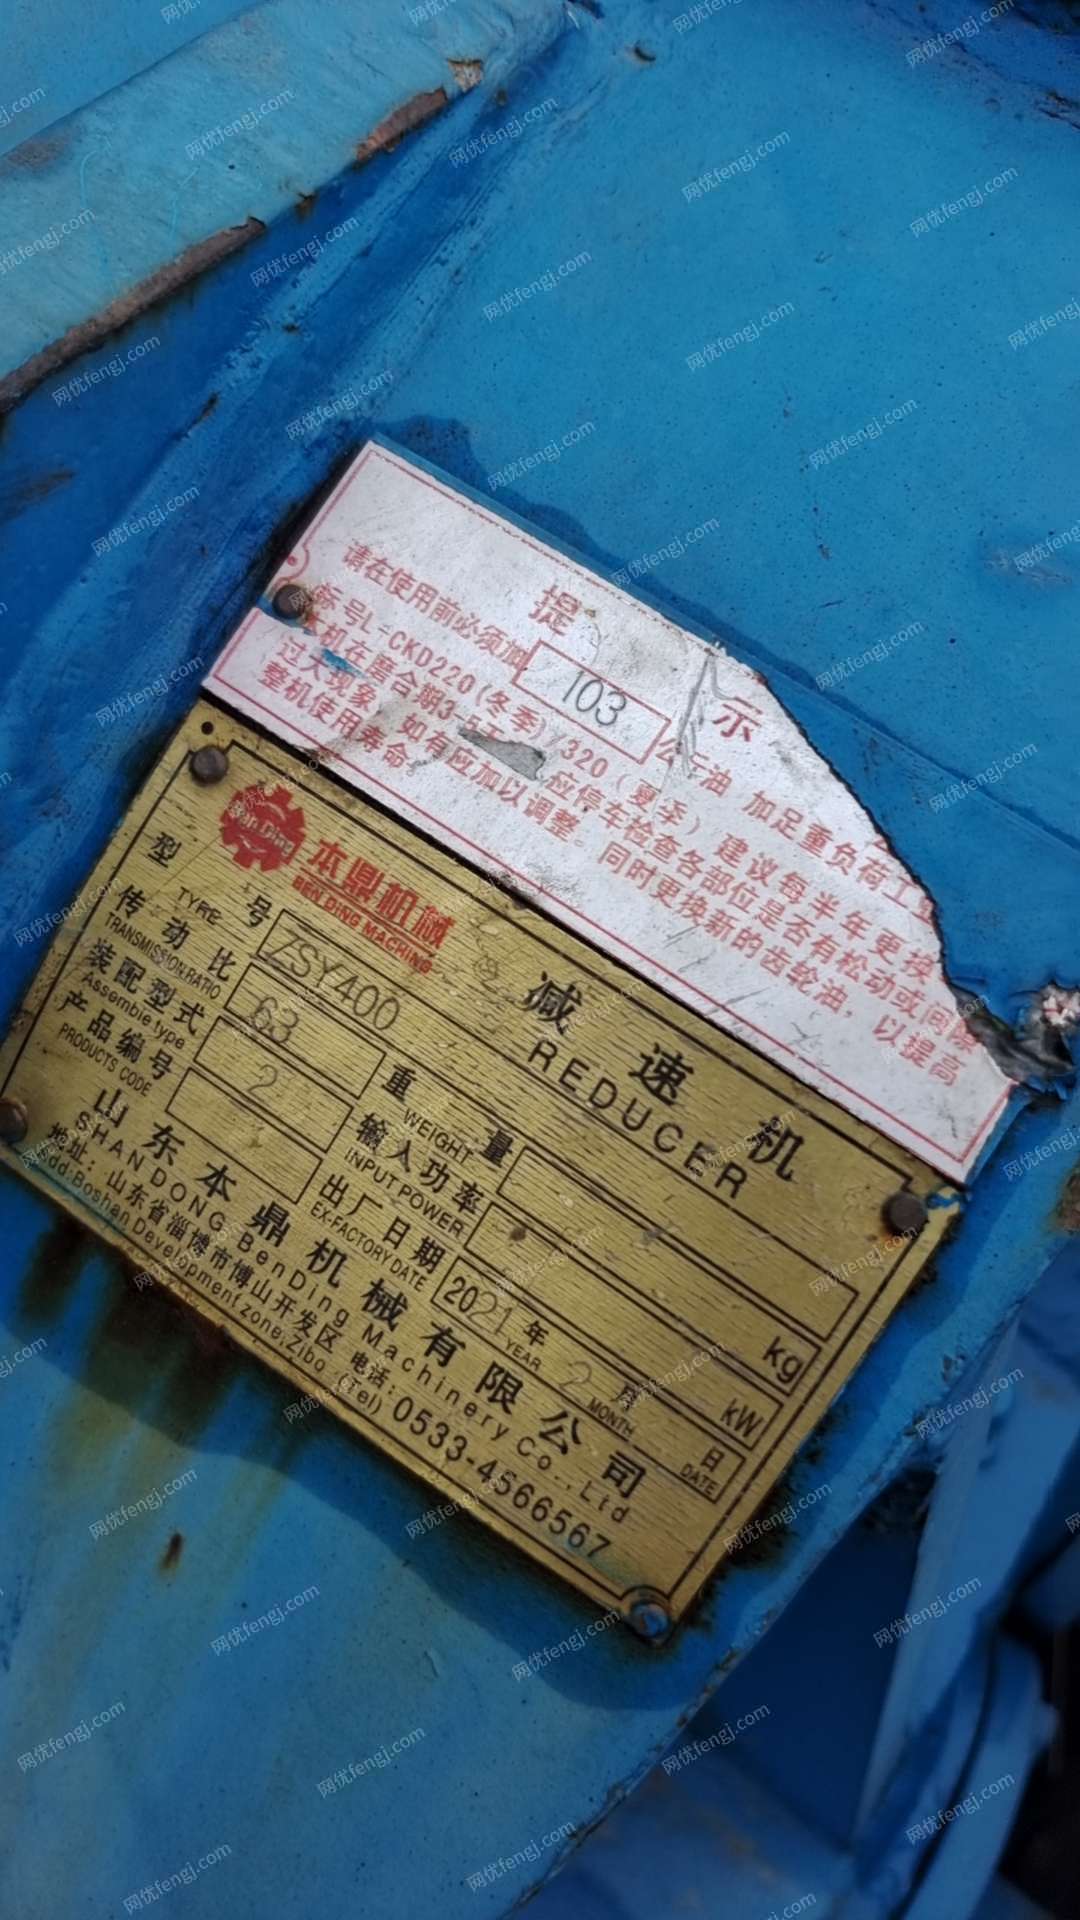 提 示
请在使用前必须加 103 公斤油 加足重负荷工业
标号L-CKD220(冬季)/320(夏季)建议每半年更换
机在磨合期3-5天 应停车检查各部位是否有松动或间隙
过大现象,如有应加以调整。同时更换新的齿轮油,以提高
整机使用寿命。
Ben Ding
本鼎机械
BEN DING MACHINING
减 速 机
REDUCER
型 号 ZSY400
TYPE
传 动 比 63
TRANSMISSION RATIO
装配型式 2
Assemble type
产品编号
PRODUCTS CODE
重 量 kg
WEIGHT
输入功率 kW
INPUT POWER
出厂日期 2021 年 2 月 日
EX-FACTORY DATE YEAR MONTH DATE
山东本鼎机械有限公司
SHANDONG BenDing Machinery Co.,Ltd
地址:山东省淄博市博山开发区 电话:
Add:Boshan Development zone,Zibo (Tel) 0533-4566567
网优fengj.com